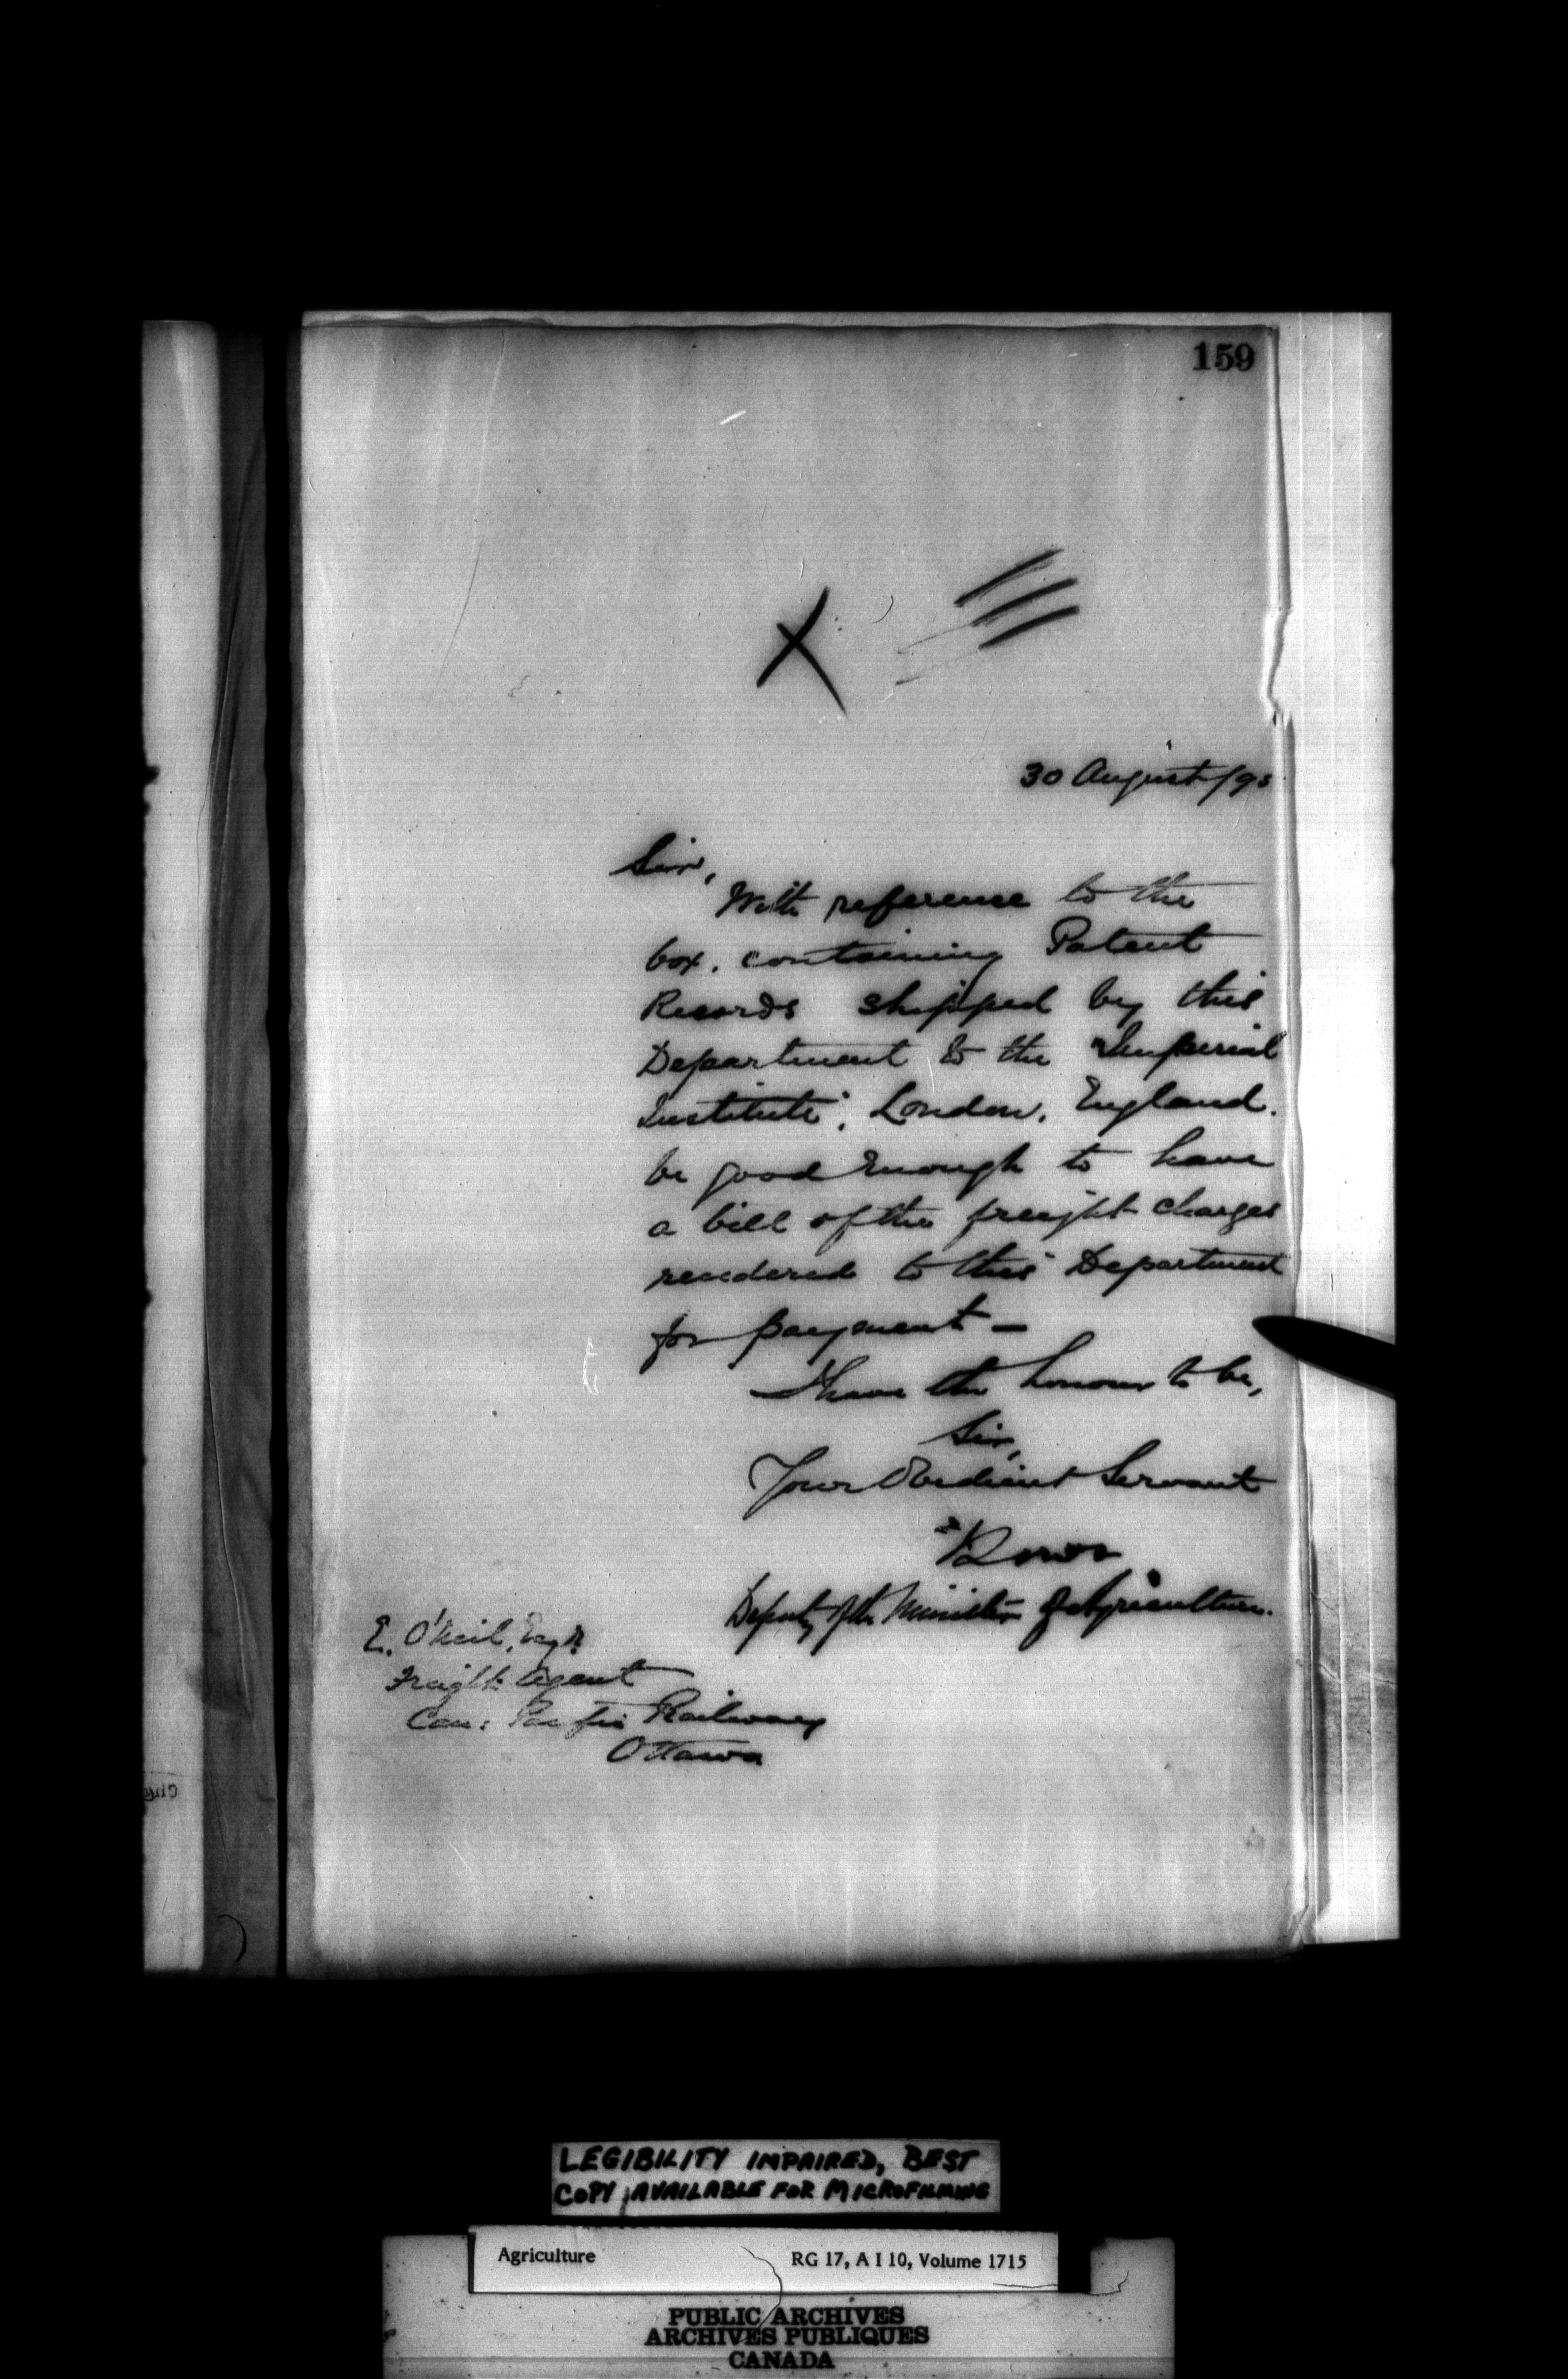 159
X
30 August/95
Sir,
With reference to the
box, containing Patent
Records shipped by this
Department to the "Imperial
Institute", London, England.
be good enough to have
a bill of the freight charges
rendered to this Department
for payment —
I have the honour to be,
Sir,
Your Obedient Servant
Deputy of the Minister of Agriculture.
E. O'Neil, Esqr.
Freight Agent
Can: Pacific Railway
Ottawa
LEGIBILITY IMPAIRED, BEST
COPY AVAILABLE FOR MICROFILMING
Agriculture RG 17, A I 10, Volume 1715
PUBLIC ARCHIVES
ARCHIVES PUBLIQUES
CANADA